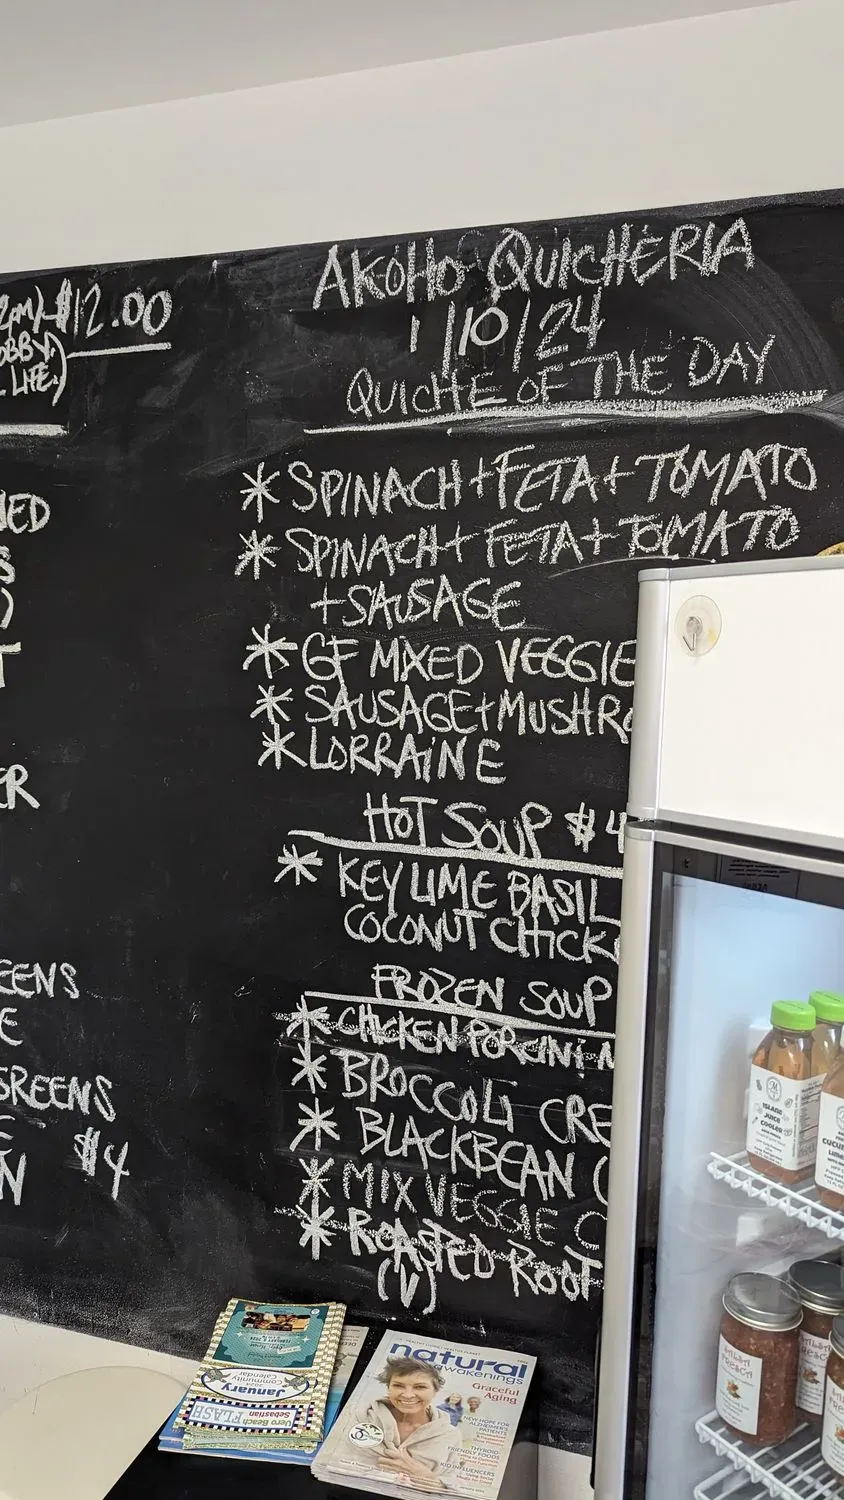 $12.00
LIFE.)
AKOHO QUICHERIA
1/10/24
QUICHE OF THE DAY
* SPINACH + FETA + TOMATO
* SPINACH + FETA + TOMATO
+ SAUSAGE
* GF MIXED VEGGIE
* SAUSAGE + MUSHRO
* LORRAINE
HOT SOUP $4
* KEY LIME BASIL
COCONUT CHICK
FROZEN SOUP
* CHICKEN PORCINI M
* BROCCOLI CRE
* BLACKBEAN (
* MIX VEGGIE C
* ROASTED ROOT
(V)
EENS
E
GREENS
$4
N
January
Community
Calendar
Vero Beach
Sebastian
FLASH
natural
awakenings
Graceful
Aging
NEW HOPE FOR
ALZHEIMER'S
PATIENTS
THYROID-
FRIENDLY FOODS
KID INFLUENCERS
ISLAND
JUICE
COOLER
SALSA
FRESCA